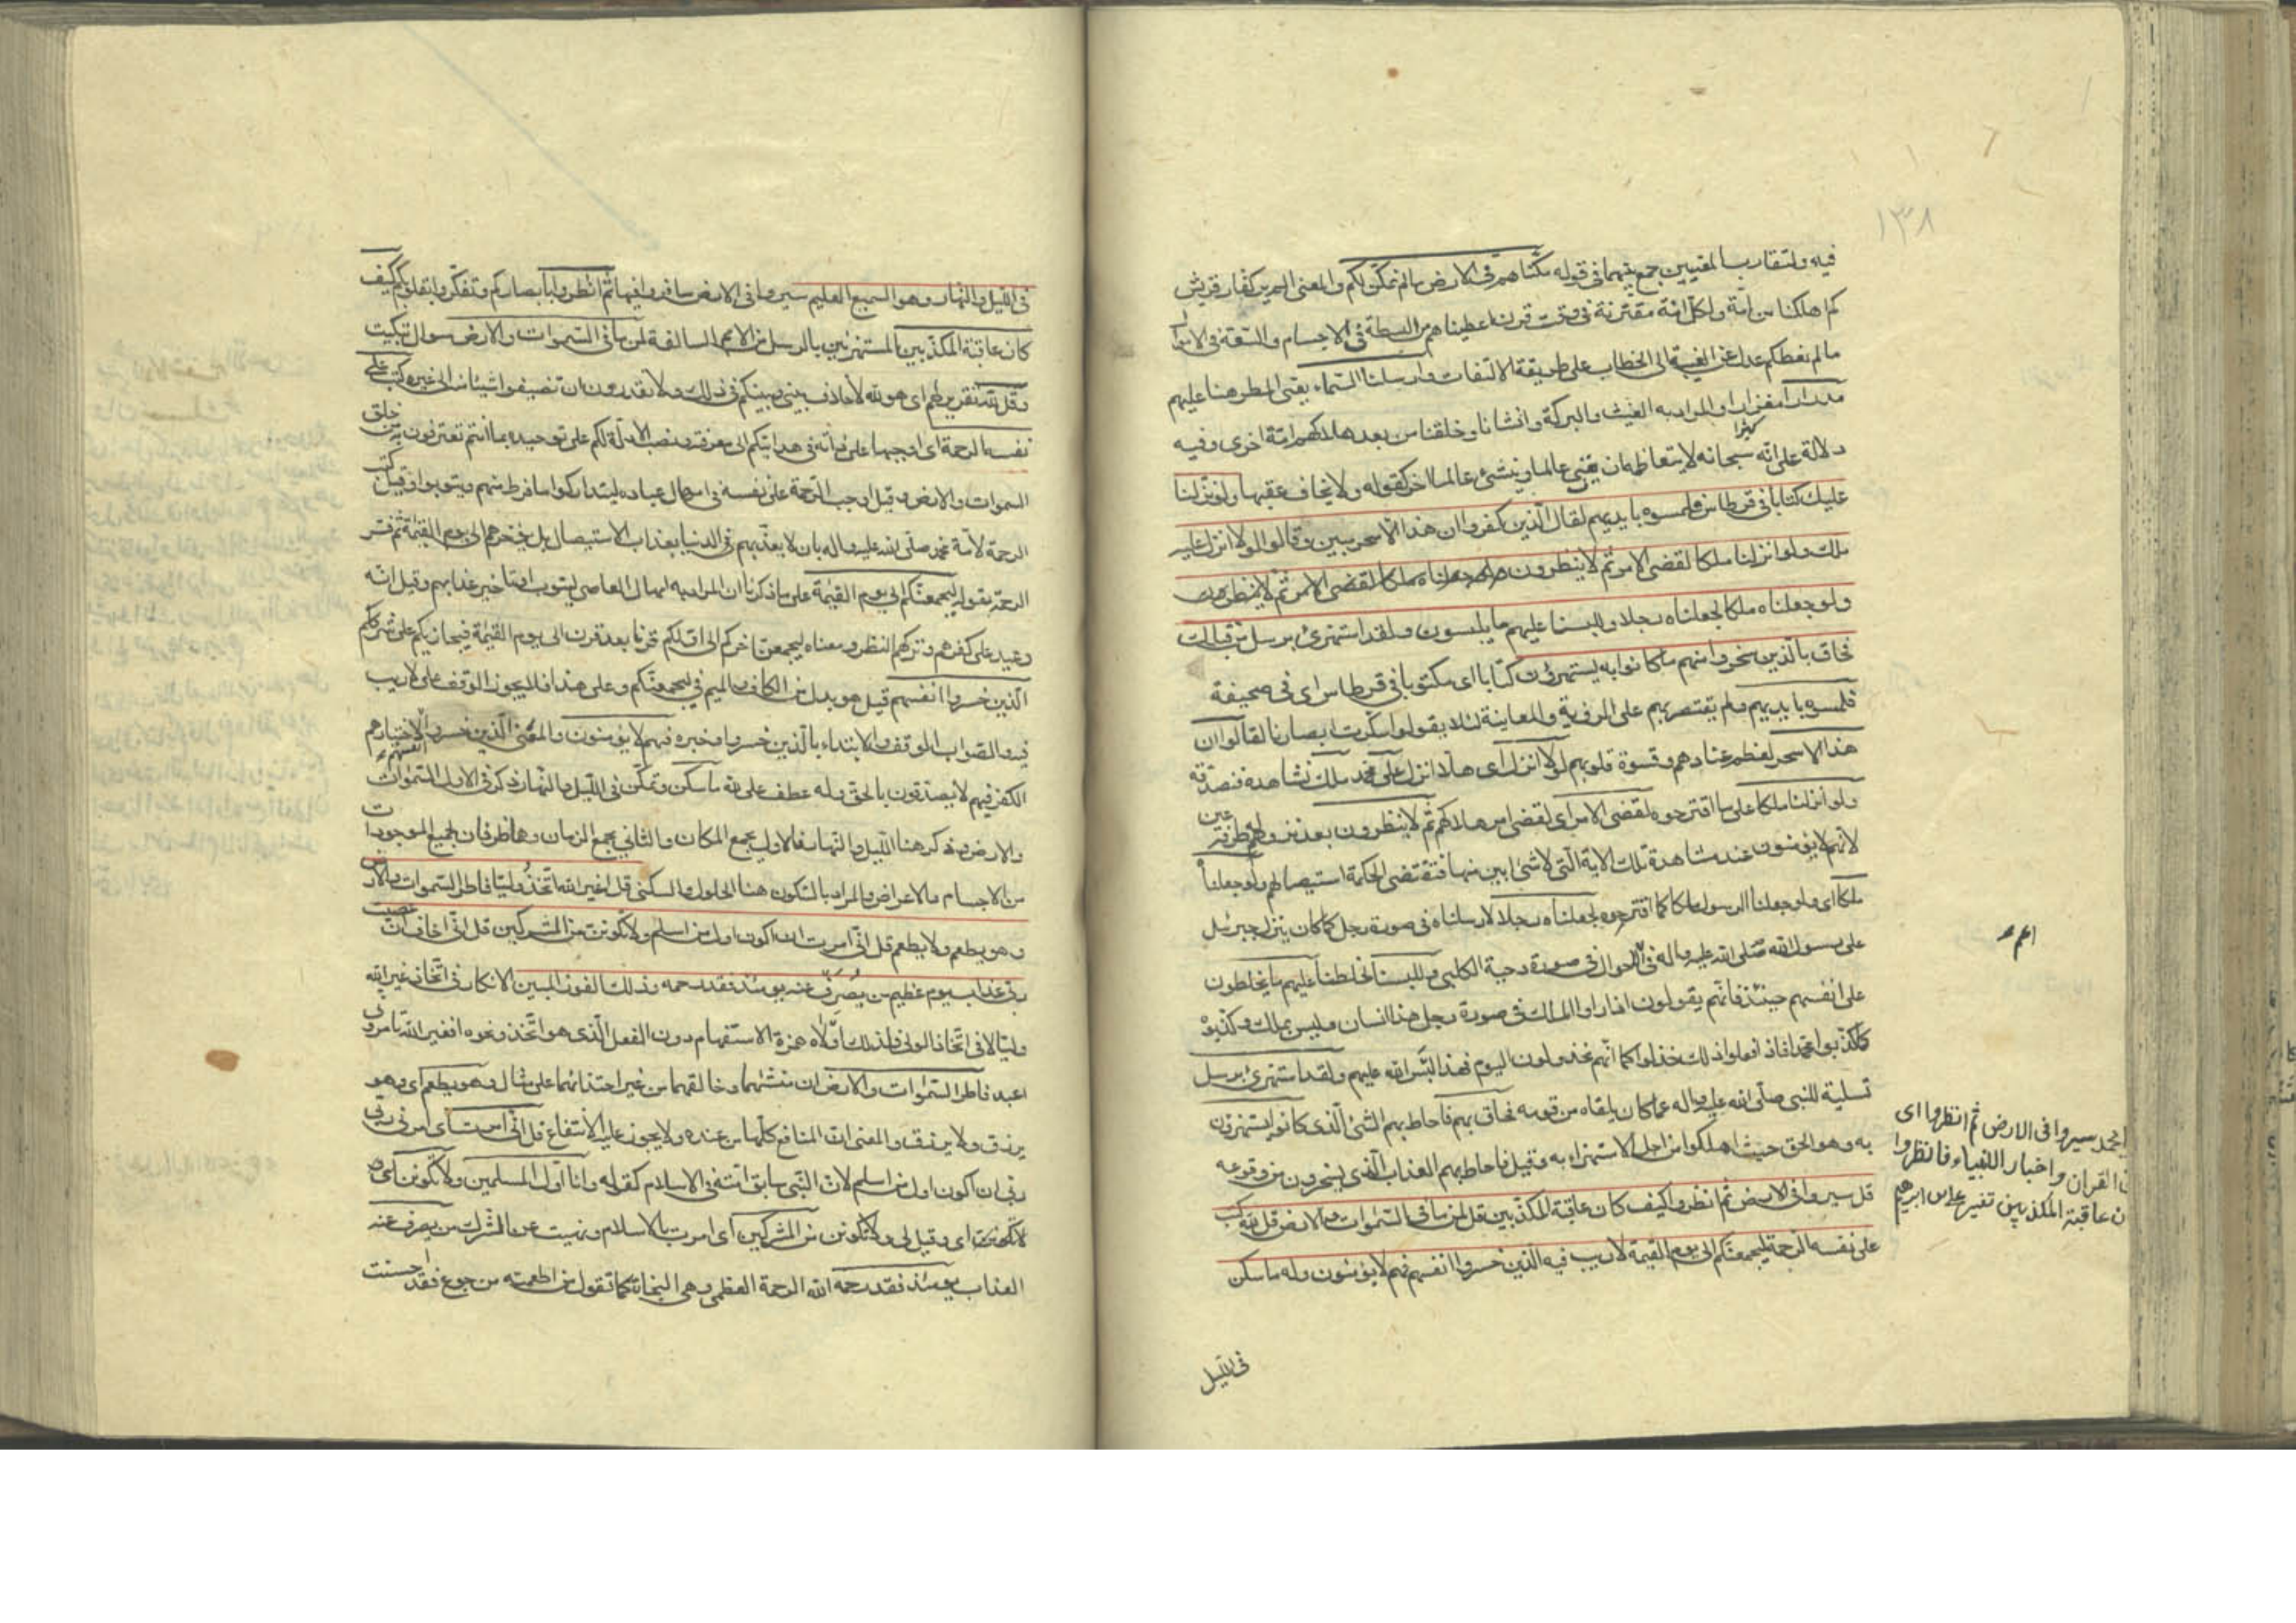 ١٣٨
فيه ولتقارب المعنيين جمع بينهما في قوله مكناهم في الارض مالم نمكن لكم والمعنى الم ير كفار قريش
كم اهلكنا من امة ولكل امة مقترنة في وقت قرن اعطيناهم من البسطة في الاجسام والسعة في الاموال
مالم نعطكم عدل عن الغيبة الى الخطاب على طريقة الالتفات وارسلنا السماء يعنى المطر هنا عليهم
مدرارا مغزارا والمراد به الغيث والبركة وانشانا وخلقنا من بعد هلاكهم امة اخرى وفيه
دلالة على انه سبحانه لا يتعاظمه ان يفنى عالما وينشئ عالما اخر كقوله ولا يخاف عقبيها ولو نزلنا
عليك كتابا في قرطاس فلمسوه بايديهم لقال الذين كفروا ان هذا الا سحر مبين وقالوا لولا انزل عليه
ملك ولو انزلنا ملكا لقضى الامر ثم لا ينظرون ولو جعلناه ملكا لقضى الامر ثم لا ينظرون
ولو جعلناه ملكا لجعلناه رجلا وللبسنا عليهم ما يلبسون ولقد استهزئ برسل من قبلك
فحاق بالذين سخروا منهم ما كانوا به يستهزؤن كتابا اى مكتوبا في قرطاس اى في صحيفة
فلمسوه بايديهم ولم يقتصر بهم على الرؤية والمعاينة لئلا يقولوا سكرت ابصارنا لقالوا ان
هذا الا سحر لعظم عنادهم وقسوة قلوبهم لولا انزل اى هلا انزل على محمد ملك نشاهده فنصدقه
ولو انزلنا ملكا على ما اقترحوه لقضى الامر اى لقضى امر هلاكهم ثم لا ينظرون بعد نزوله طرفة عين
لانهم لا يؤمنون عند مشاهدة تلك الاية التي لا شئ ابين منها فتقتضى الحكمة استيصالهم ولو جعلناه
ملكا اى ولو جعلنا الرسول ملكا كما اقترحوه لجعلناه رجلا لارسلناه في صورة رجل كما كان ينزل جبرئيل
على رسول الله صلى الله عليه واله في اعم الاحوال في صورة دحية الكلبي وللبسنا لخلطنا عليهم ما يخلطون
على انفسهم حينئذ فانهم يقولون اذا راوا الملك في صورة رجل هذا انسان وليس بملك وكذبوه
كما كذبوا محمدا فاذا فعلوا ذلك خذلوا كما انهم مخذولون اليوم فهذا لبس الله عليهم ولقد استهزئ برسل
تسلية للنبي صلى الله عليه واله عما كان يلقاه من قومه فحاق بهم فاحاط بهم الشئ الذي كانوا يستهزؤن
به وهو الحق حيث اهلكوا من اجل الاستهزاء به وقيل فاحاط بهم العذاب الذي يسخرون من وقوعه
قل سيروا في الارض ثم انظروا كيف كان عاقبة المكذبين قل لمن ما في السموات والارض قل لله كتب
على نفسه الرحمة ليجمعنكم الى يوم القيمة لا ريب فيه الذين خسروا انفسهم فهم لا يؤمنون وله ما سكن
في الليل
اعم
محمد سيروا في الارض ثم انظروا اى
القران واخبار الانبياء فانظروا
عاقبة المكذبين تفسير على بن ابرهيم
في الليل والنهار وهو السميع العليم سيروا في الارض سافروا فيها ثم انظروا بابصاركم وتفكروا بقلوبكم كيف
كان عاقبة المكذبين المستهزئين بالرسل من الامم السالفة لمن ما في السموات والارض سوال تبكيت
وقل لله تقرير لهم اى هو لله لا خلاف بيني وبينكم في ذلك ولا تقدرون ان تضيفوا شيئا منه الى غيره كتب على
نفسه الرحمة اى اوجبها على ذاته في هدايتكم الى معرفته ونصب الادلة لكم على توحيده بما انتم تعترفون به من خلق
السموات والارض وقيل اوجب الرحمة على نفسه في امهال عباده ليتداركوا ما فرط منهم ويتوبوا وقيل كتب
الرحمة لامة محمد صلى الله عليه واله بان لا يعذبهم في الدنيا بعذاب الاستيصال بل يؤخرهم الى يوم القيمة ثم فسر
الرحمة بقوله ليجمعنكم الى يوم القيمة على ما ذكرنا ان المراد به امهال العاصي ليتوب او تاخير عذابهم وقيل انه
وعيد على كفرهم وتركهم النظر ومعناه ليجمعن اخركم الى اولكم قرنا بعد قرن الى يوم القيمة فيجازيكم على شرككم
الذين خسروا انفسهم قيل هو بدل من الكاف والميم في ليجمعنكم وعلى هذا فلا يجوز الوقف على لا ريب
فيه والصواب الوقف والابتداء بالذين خسروا وخبره فهم لا يؤمنون والمعنى الذين خسروا انفسهم لاختيارهم
الكفر فهم لا يصدقون بالحق وله عطف على لله ما سكن وتمكن في الليل والنهار ذكر في الاول السموات
والارض وذكر هنا الليل والنهار فالاول يجمع المكان والثاني يجمع الزمان وهما ظرفان لجميع الموجودات
من الاجسام والاعراض والمراد بالسكون هنا الحلول والسكنى قل اغير الله اتخذ وليا فاطر السموات والارض
وهو يطعم ولا يطعم قل اني امرت ان اكون اول من اسلم ولا تكونن من المشركين قل اني اخاف ان عصيت
ربي عذاب يوم عظيم من يصرف عنه يومئذ فقد رحمه وذلك الفوز المبين الانكار في اتخاذ غير الله
وليا لا في اتخاذ الولى فلذلك اولاه همزة الاستفهام دون الفعل الذي هو اتخذ ونحوه افغير الله تامروني
اعبد فاطر السموات والارض اى منشئهما وخالقهما من غير احتذائهما على مثال وهو يطعم اى وهو
يرزق ولا يرزق والمعنى ان المنافع كلها من عنده ولا يجوز عليه الانتفاع قل اني امرت اى امرني ربي
ربي ان اكون اول من اسلم لان النبي سابق امته في الاسلام كقوله وانا اول المسلمين ولا تكونن
اى وقيل لي ولا تكونن من المشركين اى امرت بالاسلام ونهيت عن الشرك من يصرف عنه
العذاب يومئذ فقد رحمه الله الرحمة العظمى وهى النجاة كما تقول من اطعمته من جوع فقد احسنت